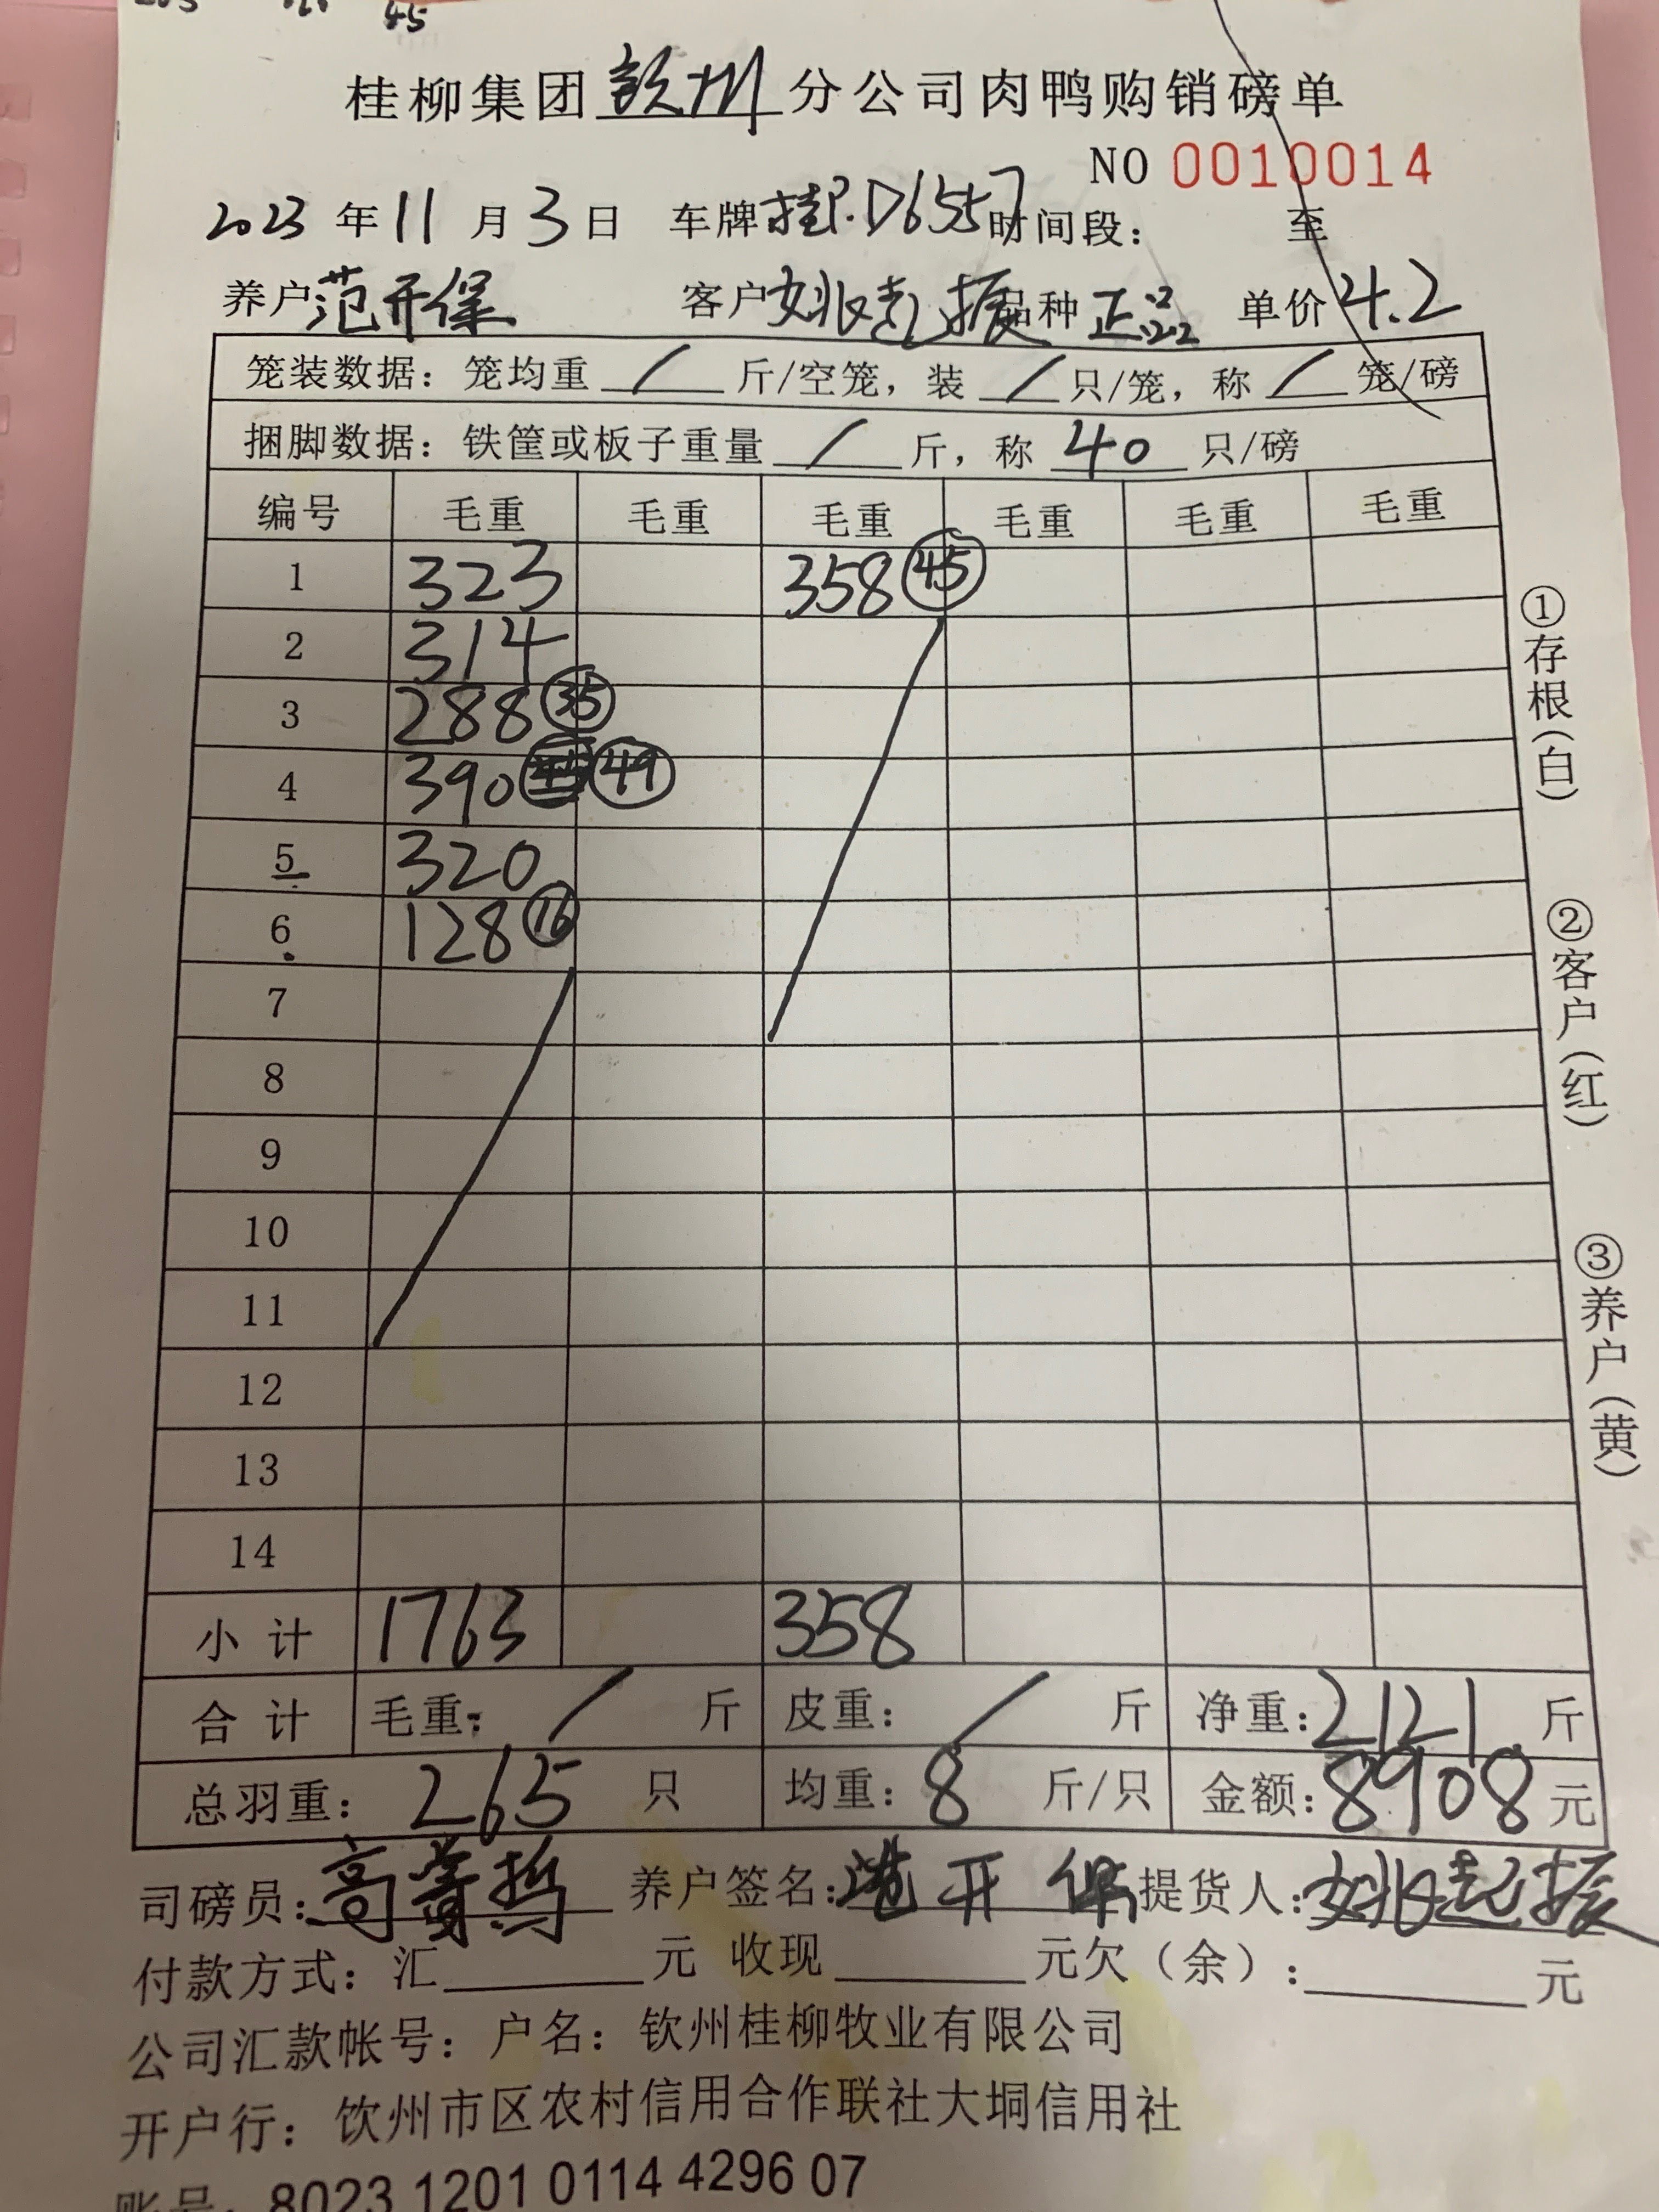 45
桂柳集团钦州分公司肉鸭购销磅单
NO 0010014
2023年11月3日 车牌桂P.D6557时间段： 至
养户范开保 客户姚起振品种正品 单价4.2
笼装数据：笼均重 / 斤/空笼，装 / 只/笼，称 / 笼/磅
捆脚数据：铁筐或板子重量 / 斤，称 40 只/磅
编号 毛重 毛重 毛重 毛重 毛重 毛重
1 323 358 45
2 314
3 288 35
4 390 49
5 320
6 128 16
7
8
9
10
11
12
13
14
小计 1763 358
合计 毛重： / 斤 皮重： / 斤 净重：2121斤
总羽重：265只 均重：8斤/只 金额：8908元
司磅员：高 哲 养户签名：范开保 提货人：姚起振
付款方式：汇 元 收现 元欠（余）： 元
公司汇款帐号：户名：钦州桂柳牧业有限公司
开户行：钦州市区农村信用合作联社大垌信用社
账号：8023 1201 0114 4296 07
①存根（白）
②客户（红）
③养户（黄）